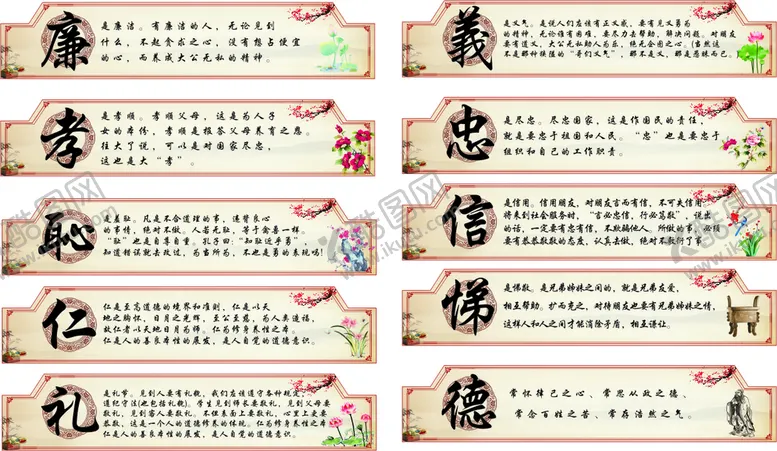 廉
是廉洁。有廉洁的人，无论见到
什么，不起贪求之心，没有想占便宜
的心，而养成大公无私的精神。
孝
是孝顺。孝顺父母，这是为人子
女的本份，孝顺是报答父母养育之恩。
往大了说，可以是对国家尽忠，
这也是大“孝”。
恥
是羞耻。凡是不合道理的事，违背良心
的事情，绝对不做。人若无耻，等于禽兽一样。
“耻”也是自尊自重。孔子曰：“知耻近乎勇”，
知道错误就去改过，为当所为，不也是勇的表现吗！
仁
仁是至高道德的境界和准则，仁是以天
地之胸怀，日月之光辉，至公至慈，为人类造福，
故仁者以天地日月为师。仁为修身养性之本，
仁是人的善良本性的展发，是人自觉的道德意识。
礼
是礼节。见到人要有礼貌，我们应该遵守各种规定，
遵纪守法(也包括礼貌)。学生见到师长要敬礼，见到父母要
敬礼，见到客人要敬礼。不但表面上要敬礼，心里上更要
恭敬，这是一个人的道德修养的体现。仁为修身养性之本
仁是人的善良本性的展发，是人自觉的道德意识。
義
是义气。是说人们应该有正义感，要有见义勇为
的精神，无论谁有困难，要尽力去帮助，解决问题。对朋友
要有道义，大公无私助人为乐，绝无企图之心。(当然这
不是那种狭隘的“哥们义气”，那不是义，那是愚昧而已。)
忠
是尽忠。尽忠国家，这是作国民的责任，
就是要忠于祖国和人民。“忠”也是要忠于
组织和自己的工作职责。
信
是信用。信用朋友，对朋友言而有信，不可失信用
将来到社会服务时，“言必忠信，行必笃敬”，说出
的话，一定要有忠有信，不欺骗他人。所做的事，必须
要有恭恭敬敬的态度，认真去做，绝对不敷衍了事
悌
是悌敬。是兄弟姊妹之间的，就是兄弟友爱，
相互帮助。扩而充之，对待朋友也要有兄弟姊妹之情，
这样人和人之间才能消除矛盾，相互谦让。
德
常怀律己之心、常思从政之德、
常念百姓之苦、常存浩然之气。